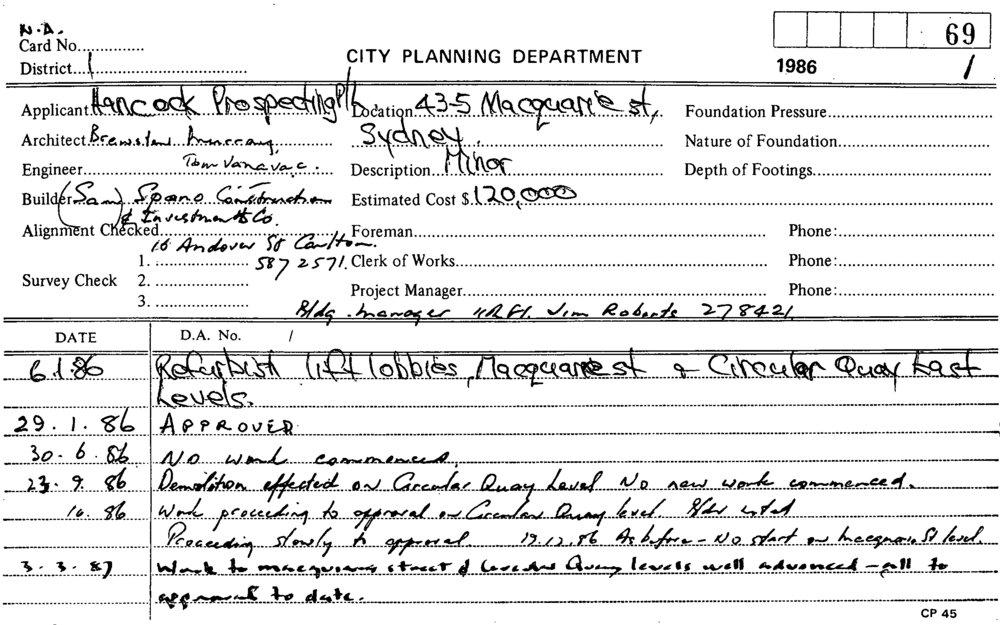 N.A.
Card No.
District 1
CITY PLANNING DEPARTMENT
69
1986 / 1
Applicant Hancock Prospecting P/L Location 43-5 Macquarie st, Foundation Pressure
Architect Brewster Murray Sydney. Nature of Foundation
Engineer Tom Vanavac. Description Minor Depth of Footings
Builder (Sam) Spano Construction Estimated Cost $ 120,000
& Investments Co.
Alignment Checked Foreman Phone:
16 Andover St Carlton.
1. 587 2571. Clerk of Works Phone:
Survey Check 2.
Project Manager Phone:
3.
Bldg. manager Jim Roberts 278421
DATE D.A. No. /
6.1.86 Refurbish lift lobbies, Macquarie st & Circular Quay East
Levels.
29.1.86 APPROVED
30.6.86 No work commenced.
23.9.86 Demolition effected on Circular Quay Level No new work commenced.
10.86 Work proceeding to approval on Circular Quay level.
Proceeding slowly to approval. 19.12.86 As before - No start on Macquarie St level.
3.3.87 Work to macquarie street & Circular Quay levels well advanced - all to
approval to date.
CP 45